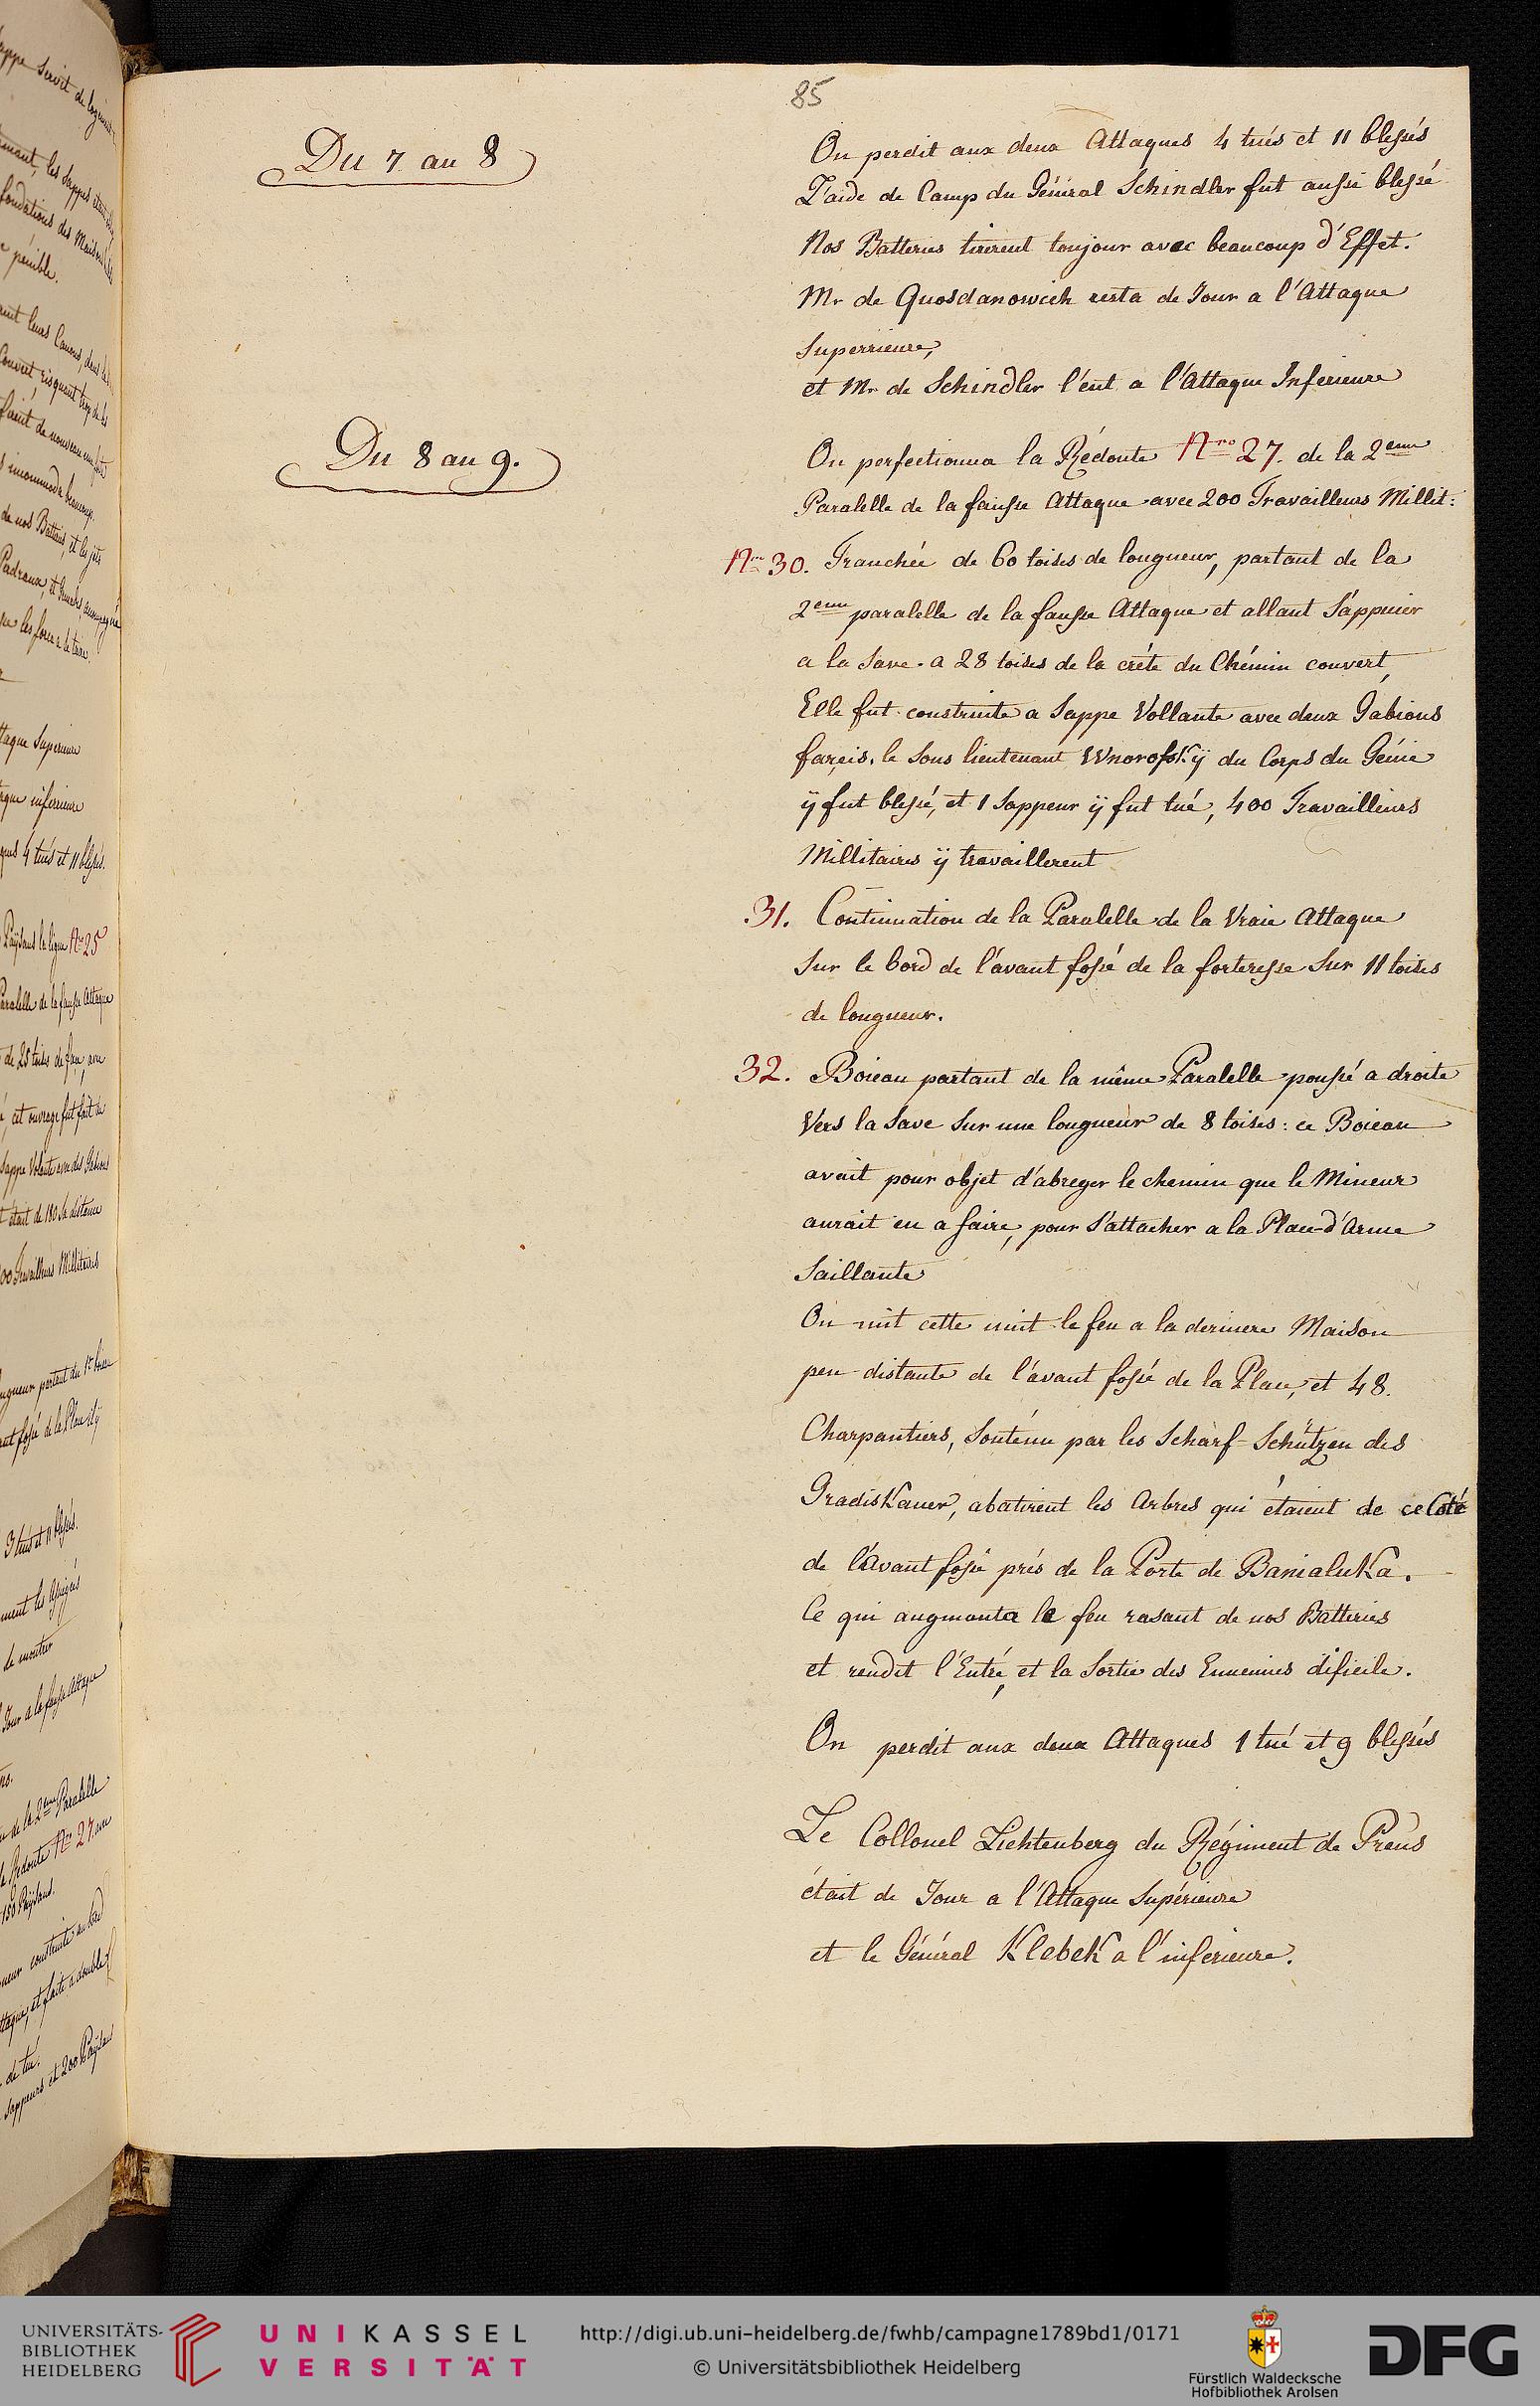 85
Du 7 au 8
On perdit aux deux Attaques 4 tués et 11 blessés
L'aide de Camp du Général Schindler fut aussi blessé
Nos Batteries tirerent toujour avec beaucoup d'Effet.
Mr de Quosdanowich resta de Jour a l'Attaque
Superrieure,
et Mr de Schindler l'eut a l'Attaque Inferieure
Du 8 au 9.
On perfectionna la Rédoute Nro 27. de la 2eme
Paralelle de la fausse Attaque avec 200 Travailleurs Millit:
Nro 30. Tranchée de 60 toises de longueur, partant de la
2eme paralelle de la fausse Attaque et allant s'appuier
a la Save. a 28 toises de la crête du Chémin couvert,
Elle fut construite a Sappe Vollante avec deux Gabions
farcis. le Sous lieutenant Wnorofskÿ du Corps du Génie
ÿ fut blessé, et 1 Sappeur ÿ fut tué, 400 Travailleurs
Millitaires ÿ travaillerent
31. Continuation de la Paralelle de la Vraie Attaque
Sur le bord de l'avant fossé de la forteresse Sur 11 toises
de longueur.
32. Boieau partant de la même Paralelle poussé a droite
Vers la Save Sur une longueur de 8 toises: ce Boieau
avait pour objet d'abreger le chemin que le Mineur
aurait eu a faire, pour s'attacher a la Place d'Arme
Saillante
On mit cette nuit le feu a la derniere Maison
peu distante de l'avant fossé de la Place, et 48.
Charpantiers, Soutenu par les Scharf-Schützen des
Gradiskaner, abatirent les Arbres qui étaient de ce Coté
de l'Avant fossé prés de la Porte de Banialuka.
Ce qui augmenta le feu rasant de nos Batteries
et rendit l'Entré, et la Sortie des Ennemies dificile.
On perdit aux deux Attaques 1 tué et 9 blessés
Le Collonel Lichtenberg du Régiment de Preüs
était de Jour a l'Attaque Supérieure
et le Général Klebek a l'inferieure.
UNIVERSITÄTS-
BIBLIOTHEK
HEIDELBERG
UNIKASSEL
VERSITÄT
http://digi.ub.uni-heidelberg.de/fwhb/campagne1789bd1/0171
© Universitätsbibliothek Heidelberg
Fürstlich Waldecksche
Hofbibliothek Arolsen
DFG